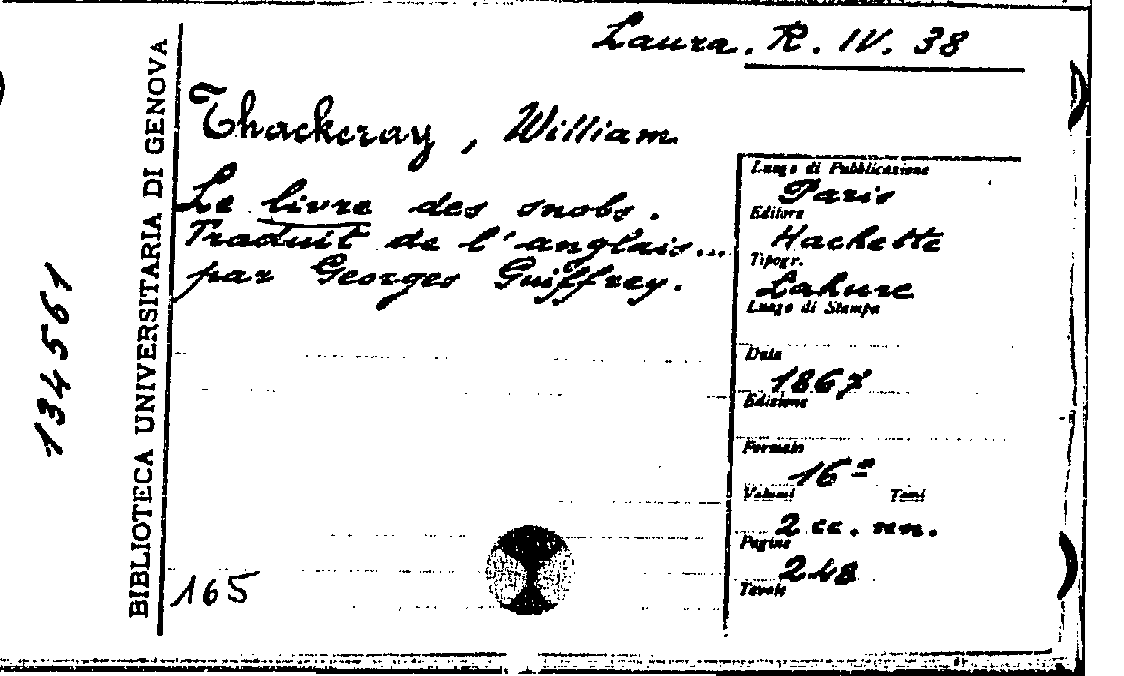 Laura. R. IV. 38
BIBLIOTECA UNIVERSITARIA DI GENOVA
134561
Thackeray, William
Le livre des snobs.
Traduit de l'anglais...
par Georges Guiffrey.
165
Luogo di Pubblicazione
Paris
Editore
Hachette
Tipogr.
Lahure
Luogo di Stampa
Data
1867
Edizione
Formato
16º
Volumi Tomi
2 cc. nn.
Pagine
248
Tavole